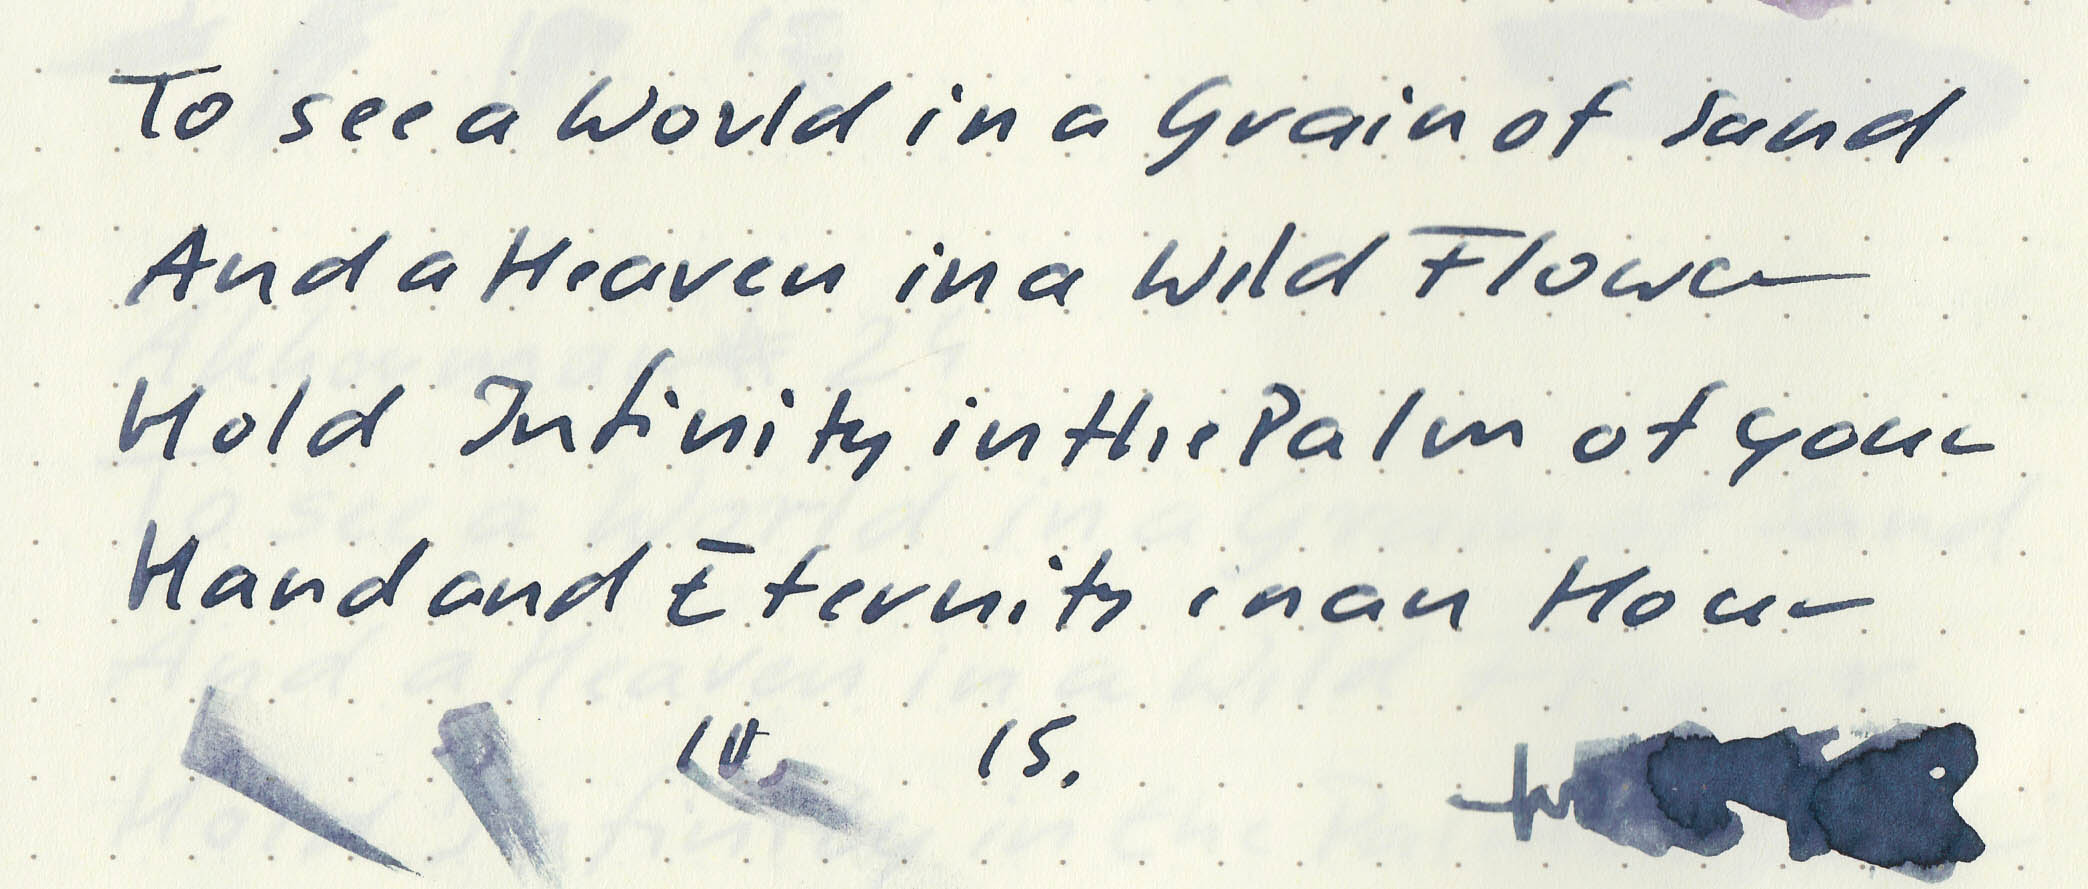 To see a World in a Grain of Sand
And a Heaven in a Wild Flower
Hold Infinity in the Palm of your
Hand and Eternity in an Hour
10. 15.